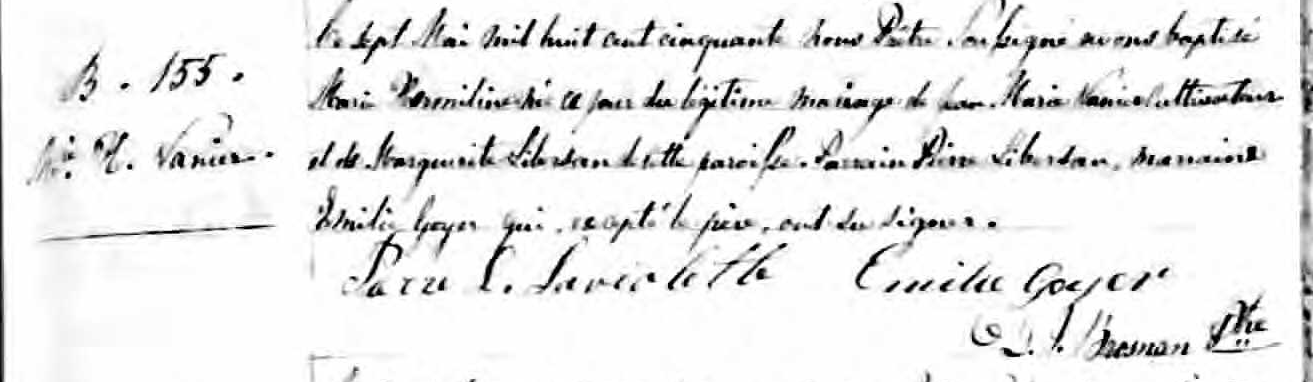 B. 155.
M. H. Vanier.
Le sept Mai mil huit cent cinquante nous Prêtre Soussigné avons baptisé
Marie Hermiline née ce jour du légitime mariage de Jean Marie Vanier cultivateur
et de Marguerite Libersan de cette paroisse. Parrain Pierre Libersan, marraine
Emilie Goyer qui, excepté le père, ont su signer.
Pierre L. Laviolette Emilie Goyer
Brosnan Ptre